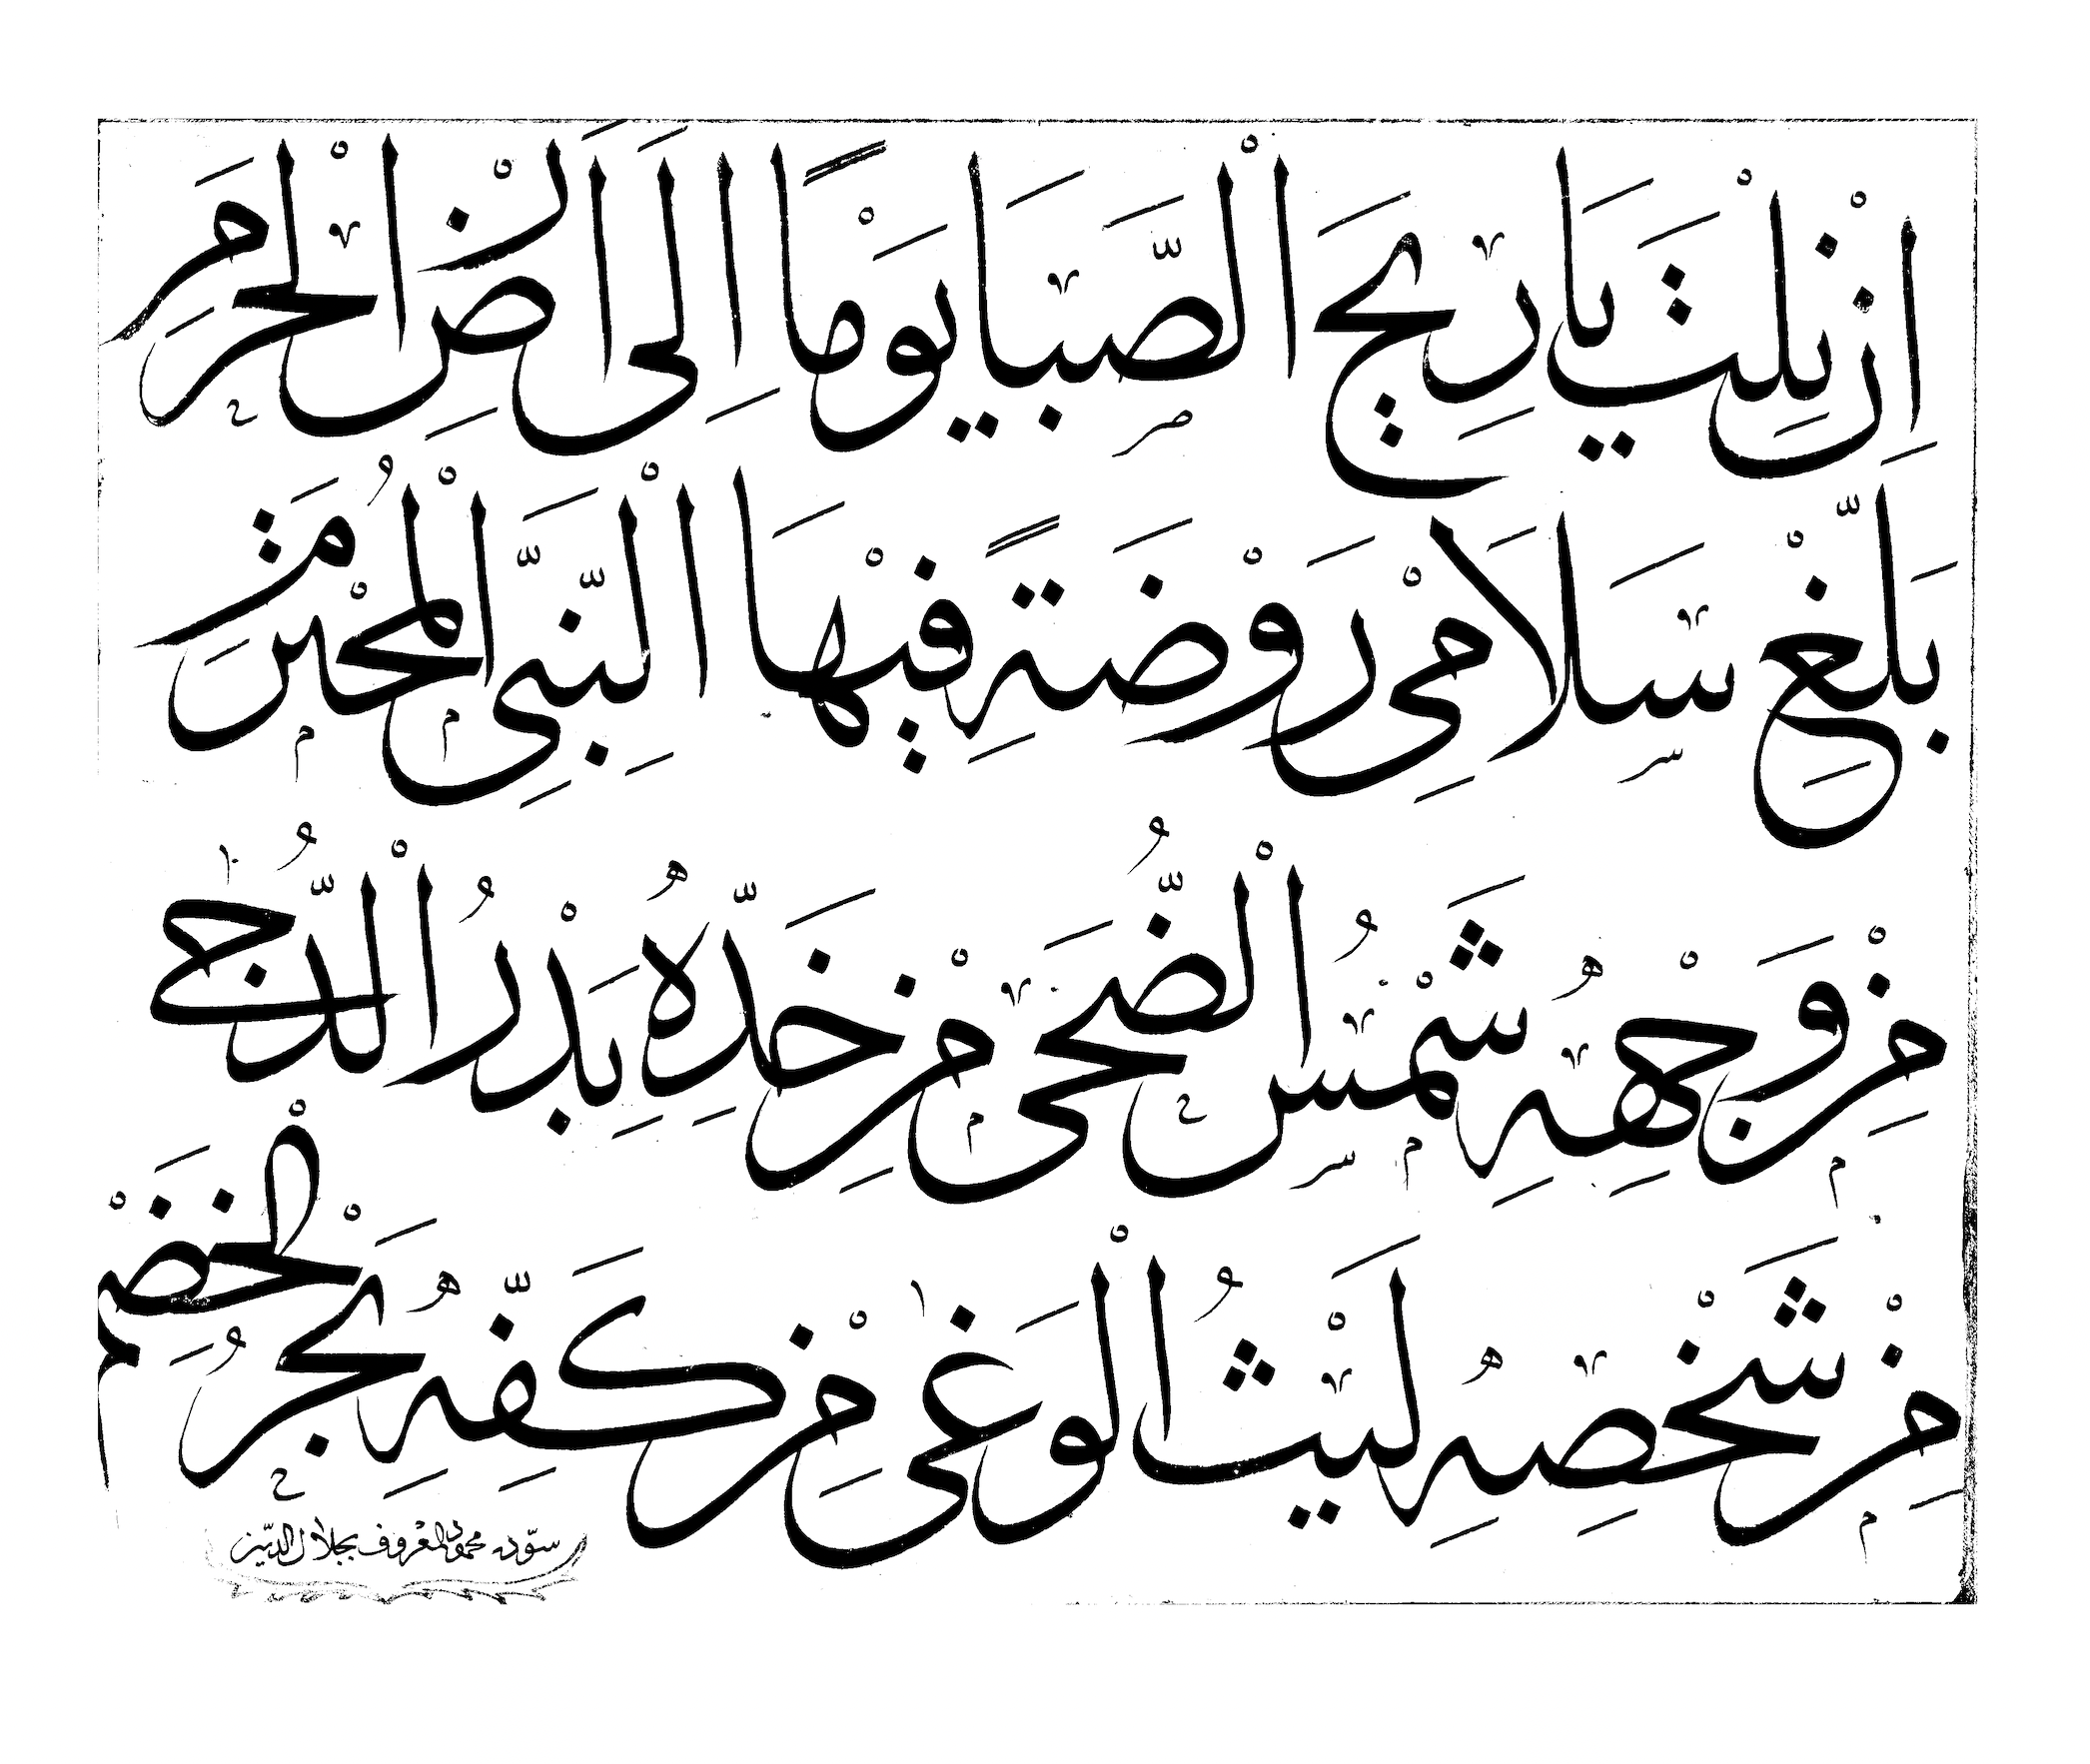 اِنْ نِلْتَ يَا رِيحَ الْصَّبَا يَوْمًا اِلَى اَرْضِ الْحَرَمِ
بَلِّغْ سَلَامِى رَوْضَةً فِيْهَا الْنَّبِىِّ الْمُحْتَرَمْ
مِنْ وَجْهِهِ شَمْسُ الْضُّحَى مِنْ خَدِّهِ بَدْرُ الْدُّجَى
مِنْ شَخْصِهِ لَيْثُ الْوَغَى مِنْ كَفِّهِ بَحْرُ الْخَضَمْ
سوّده محمود المعروف بجلال الدين